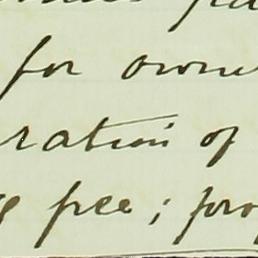 for owne
ration of
free; pro